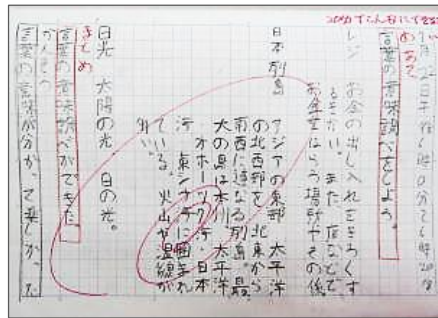 めあて
言葉の意味調べをしよう。
レジ お金の出し入れをきろくす
るきかい。また、店などで
お金をはらう場所やその係
日本列島 アジアの東部、太平洋
の北西部を、北東から
南西に連なる列島。最
大の島は本州。太平洋
・オホーツク海・日本
海・東シナ海に囲まれ
ている。火山や温線が
多い。
日光 太陽の光。日の光。
まとめ
言葉の意味調べができた
かんそう
言葉の意味が分かって楽しかった